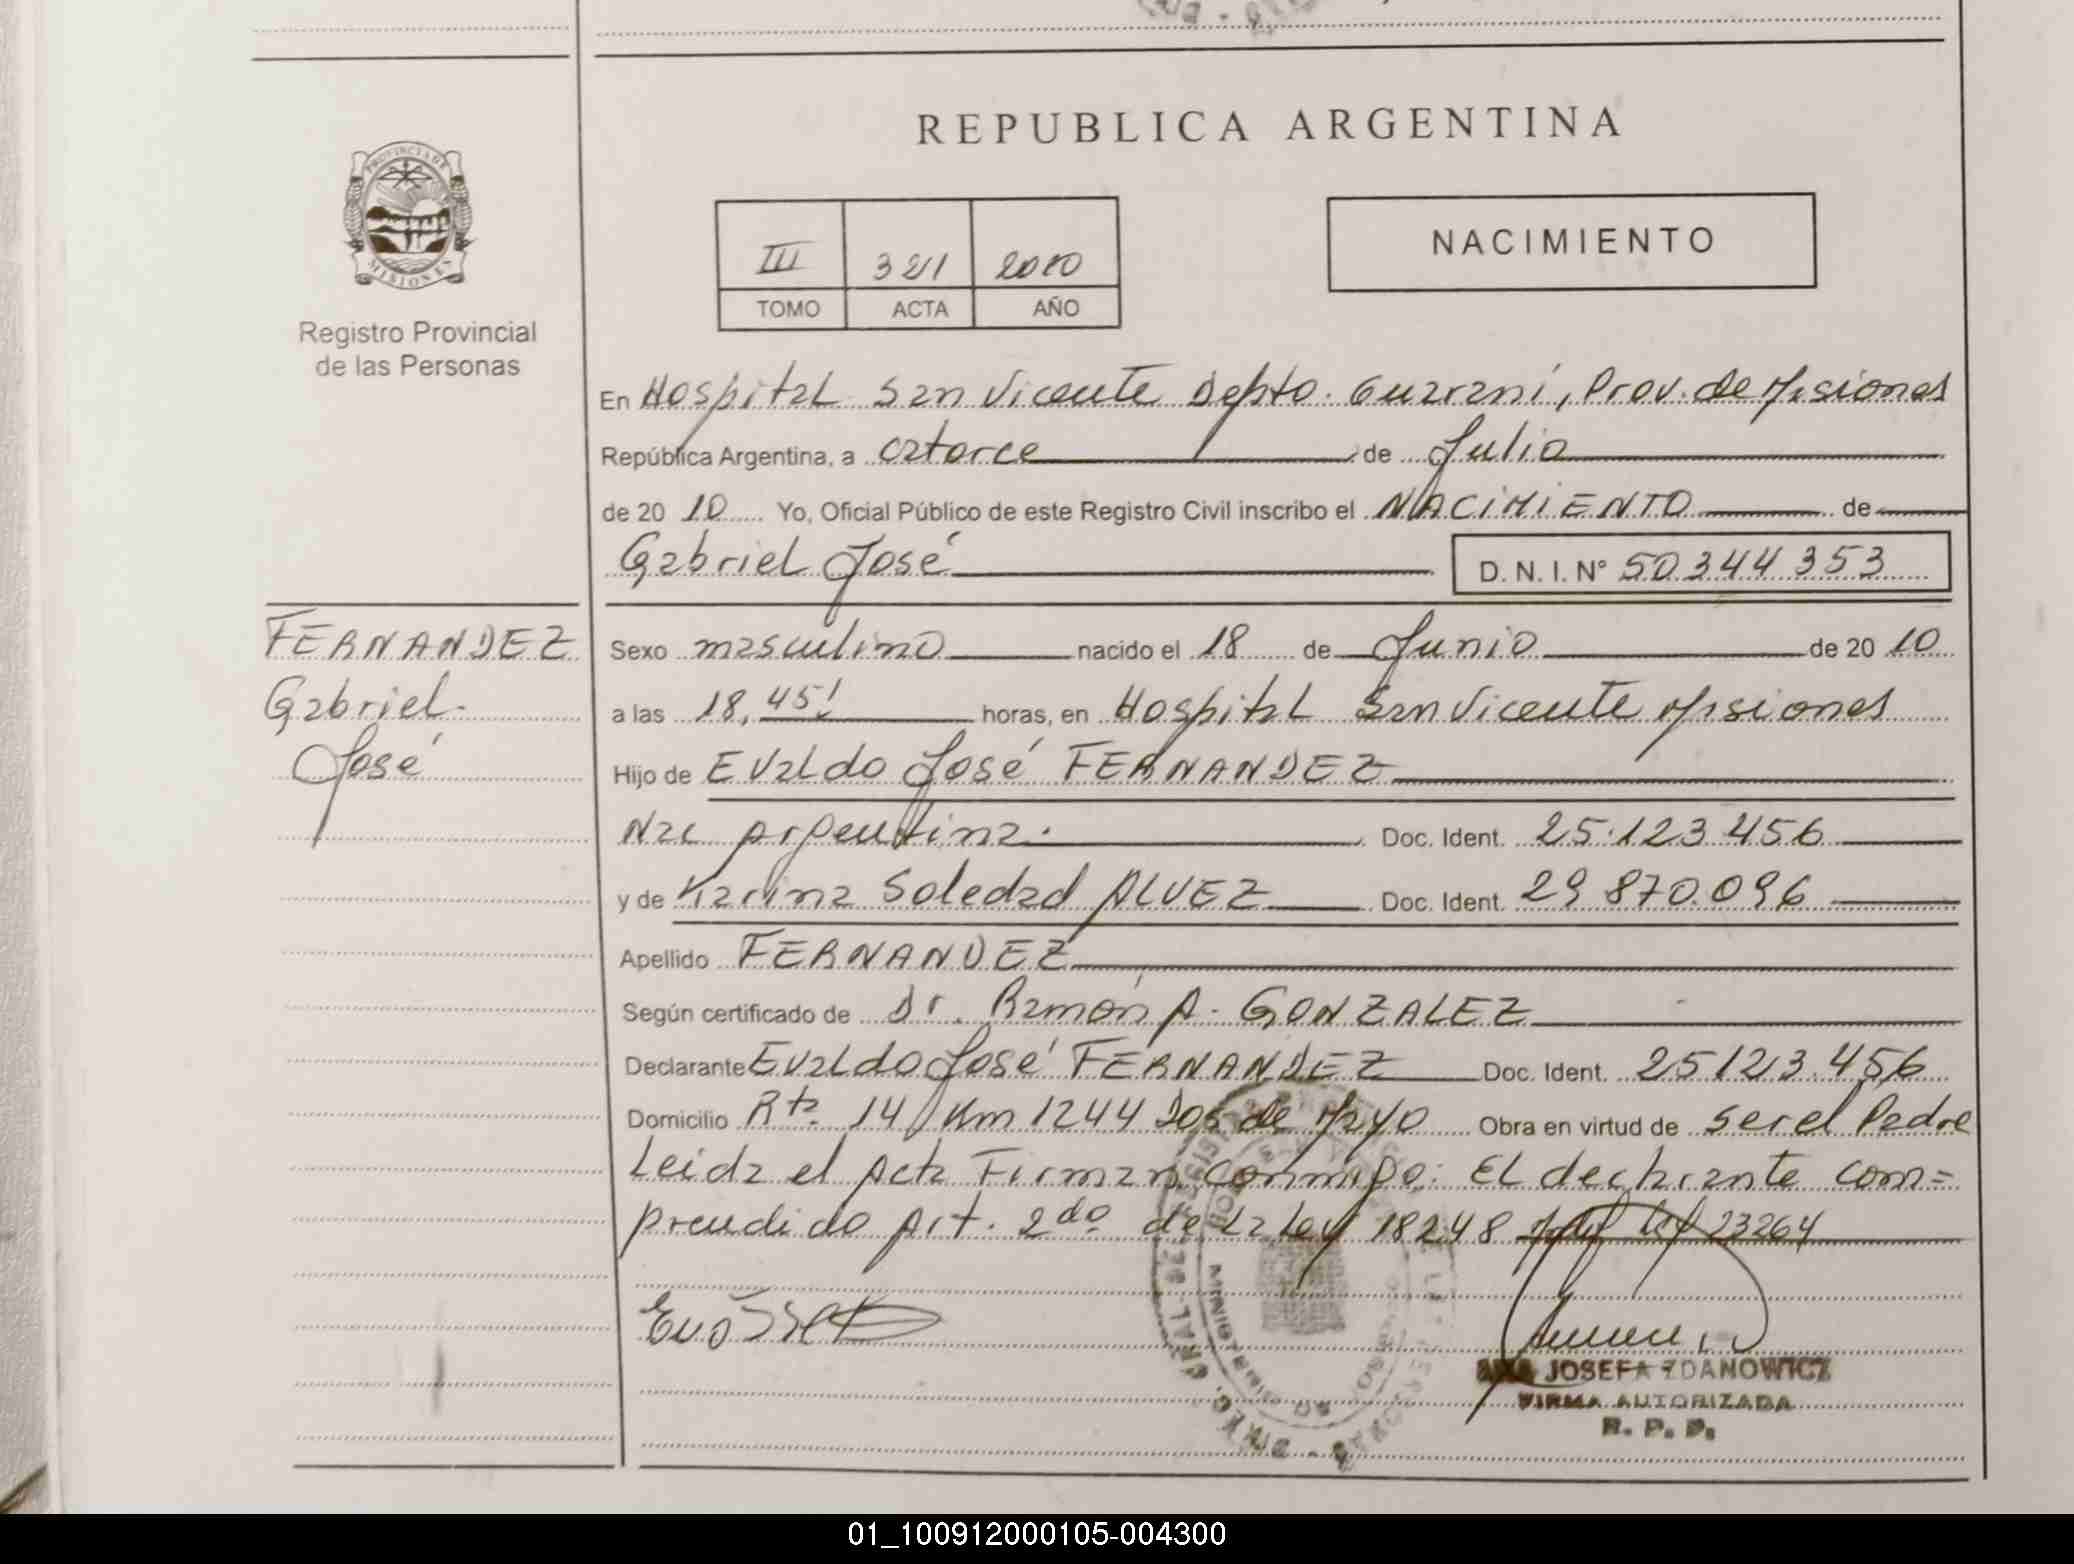 REPUBLICA ARGENTINA
PROVINCIA DE
MISIONES
Registro Provincial
de las Personas
III 321 2010
TOMO ACTA AÑO
NACIMIENTO
En Hospital San Vicente Depto. Guaraní, Prov. de Misiones
República Argentina, a catorce de Julio
de 20 10 Yo, Oficial Público de este Registro Civil inscribo el NACIMIENTO de
Gabriel José D. N. I. Nº 50344353
FERNANDEZ
Gabriel
José
Sexo masculino nacido el 18 de Junio de 20 10
a las 18,45' horas, en Hospital San Vicente Misiones
Hijo de Evaldo José FERNANDEZ
Nac Argentina. Doc. Ident. 25.123.456
y de Karina Soledad ALVEZ Doc. Ident. 29 870.096
Apellido FERNANDEZ
Según certificado de Dr. Ramón A. GONZALEZ
Declarante Evaldo José FERNANDEZ Doc. Ident. 25123.456
Domicilio Rta. 14 Km 1244 Dos de Mayo Obra en virtud de ser el Padre
Leida el Acta Firman conmigo: El declarante com=
prendido Art. 2do de la Ley 18248 Ley 23264
JOSEFA ZDANOWICZ
FIRMA AUTORIZADA
R. P. P.
01_100912000105-004300